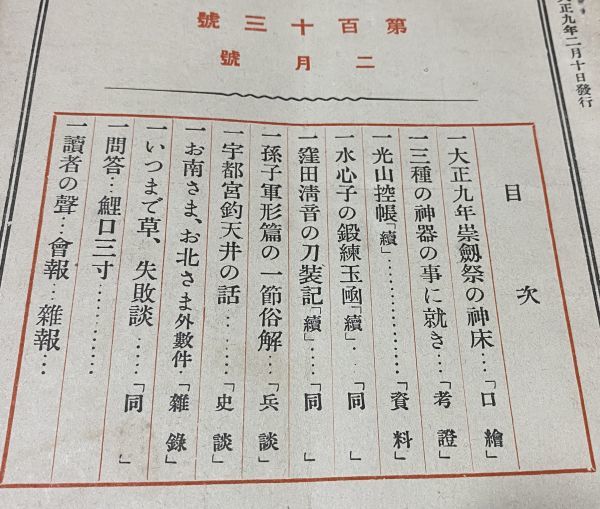 大正九年二月十日發行
第百十三號
二月號
目次
一大正九年祟劔祭の神床…「口繪」
一三種の神器の事に就き…「考證」
一光山控帳「續」…………「資料」
一水心子の鍛練玉凾「續」…「同」
一窪田淸音の刀装記「續」…「同」
一孫子軍形篇の一節俗解…「兵談」
一宇都宮釣天井の話………「史談」
一お南さま、お北さま外數件「雜錄」
一いつまで草、失敗談……「同」
一問答…鯉口三寸…………
一讀者の聲…會報…雜報…